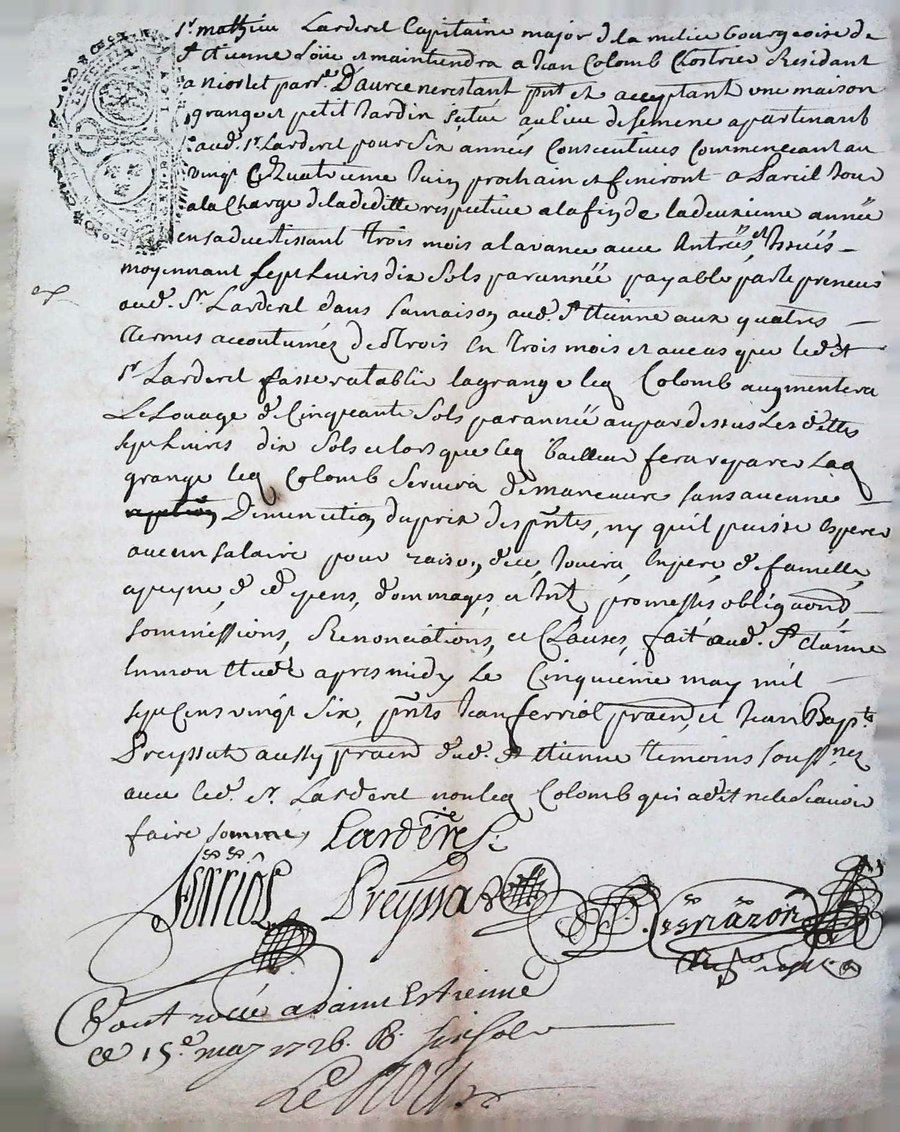 Sr mathieu Larderet Capitaine major de la milice bourgeoise de
St Etienne Loüe et maintiendra a Jean Colomb Residant
a parre Daurec prnt et acceptant une maison
grange et petit Jardin situé au lieu de semene apartenant
aud. Sr Larderet pour Six années Consecutives Commenceant au
vingt Quatrieme Juin prochain et finiront a Pareil Jour
a la Charge de la deditte respective a la fin de la deuxieme année
en sadvertissant trois mois a lavance avec Antréés et Issuës
moyennant Sept Livres dix Sols par année payable par le preneur
aud. Sr Larderet dans sa maison aud. St Etienne aux quatres
termes accoutuméz de trois En trois mois et au cas que led.
Sr Larderet fasse ratablir la grange leq Colomb augmentera
Le Louage de Cinquante Sols par année au par dessus Les dittes
sept Livres dix Sols et lors que leq bailleur fera reparer laq
grange leq Colomb Servira de maneuvre sans aucune
Diminution du prix des prntes, ny quil puisse esperer
aucun salaire pour raison de ce, Jouira, En pere de famille,
a peyne de depens, dommages, et Int promesses obligaons,
sommissions, Renonciations, et Clauses, fait aud. St Etienne
En mon Etude apres midy Le Cinquieme may mil
sept Cens vingt Six, prnts Jean ferriol praticn, et Jean Bapte
Preyssat aussy praticn dud. St Etienne temoins soussnez
avec led. Sr Larderet non leq Colomb qui a dit ne le Scavoir
faire sommé, Larderet
ferriol Preyssat
Cont rollé a Saint Estienne
ce 15e may 1726. R six sols